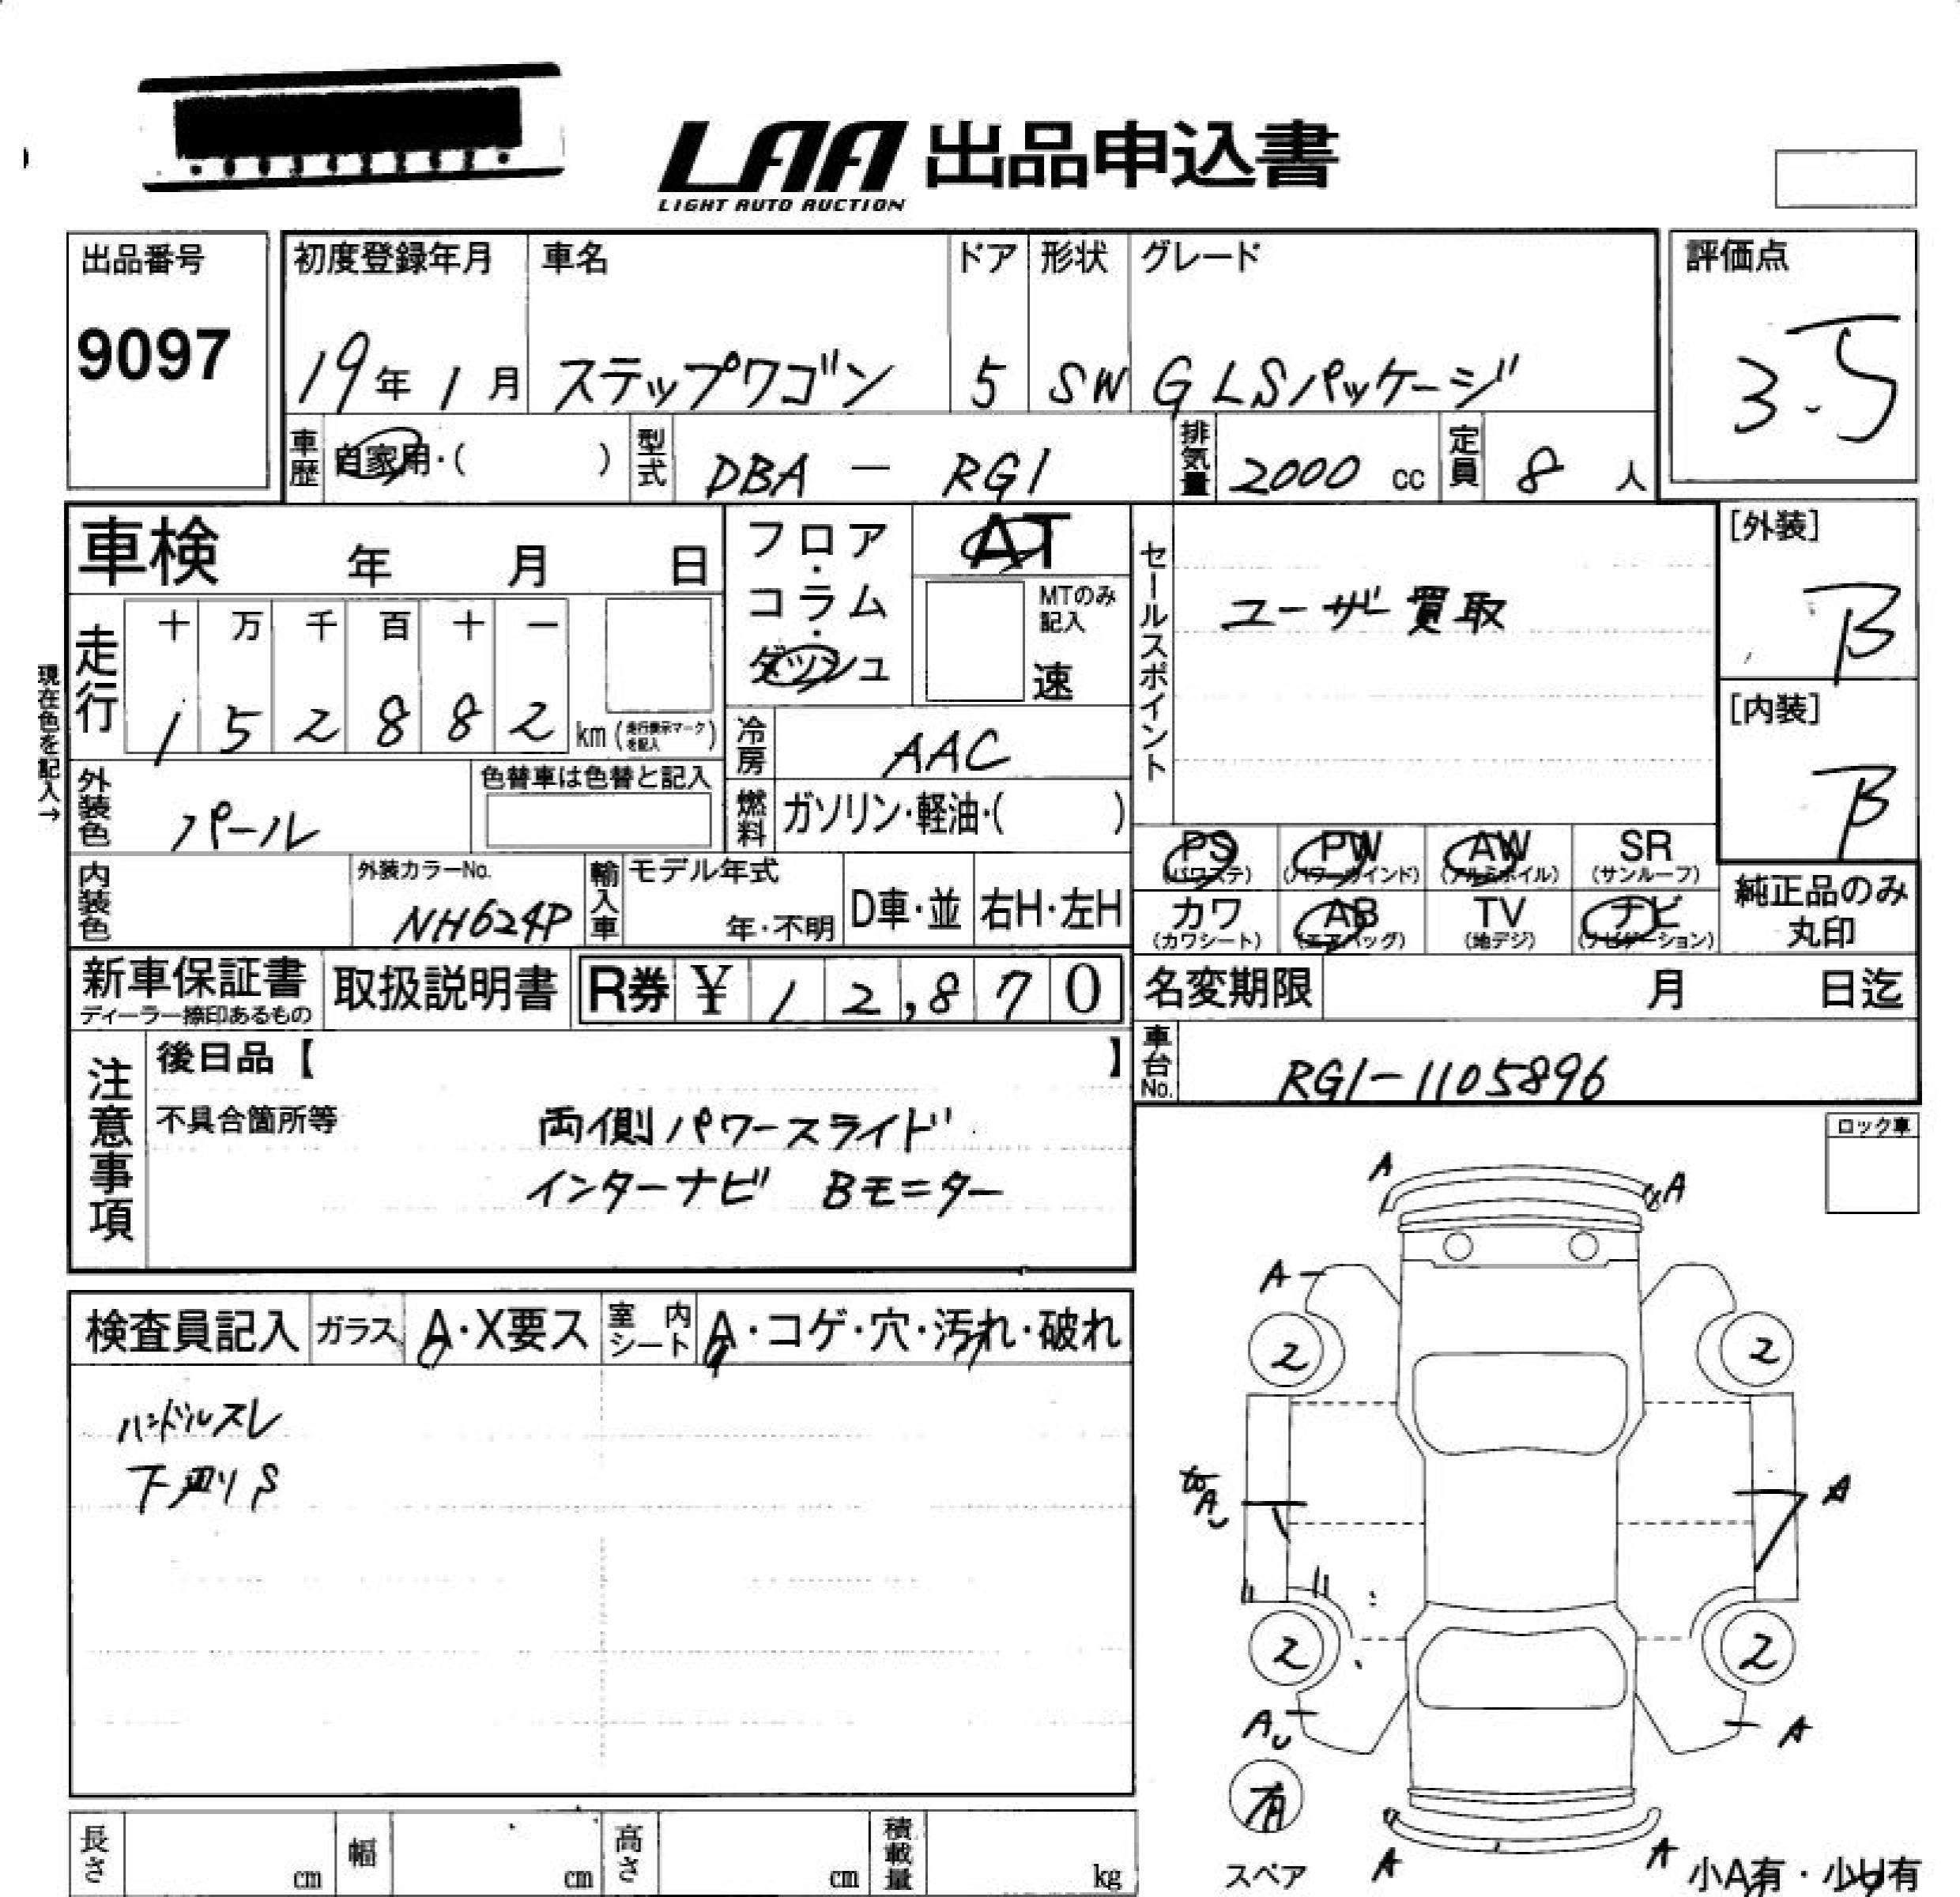 LAA 出品申込書
LIGHT AUTO AUCTION
出品番号
9097
初度登録年月
19年1月
車名
ステップワゴン
ドア
5
形状
SW
グレード
G LSパッケージ
評価点
3.5
車歴
自家用・( )
型式
DBA - RG1
排気量
2000 cc
定員
8 人
車検 年 月 日
フロア・コラム・ダッシュ
AT
MTのみ記入
速
セールスポイント
ユーザー買取
[外装]
B
[内装]
B
現在色を記入→
走行
十 万 千 百 十 一
1 5 2 8 8 2 km(走行表示マークを記入)
冷房
AAC
外装色
パール
色替車は色替と記入
燃料
ガソリン・軽油・( )
PS
(パワステ)
PW
(パワーウインド)
AW
(アルミホイル)
SR
(サンルーフ)
カワ
(カワシート)
AB
(エアバッグ)
TV
(地デジ)
ナビ
(ナビゲーション)
純正品のみ
丸印
内装色
外装カラーNo.
NH624P
輸入車
モデル年式
年・不明
D車・並
右H・左H
新車保証書
ディーラー捺印あるもの
取扱説明書
R券 ¥ 1 2,8 7 0
名変期限 月 日迄
車台No.
RG1-1105896
注意事項
後日品【 】
不具合箇所等
両側パワースライド
インターナビ Bモニター
ロック車
検査員記入
ガラス
A・X要ス
室内シート
A・コゲ・穴・汚れ・破れ
ハンドルスレ
下廻りS
A A
A
2 2
A
A
2 2
AU A
有
スペア
A A
小A有・小U有
長さ cm
幅 cm
高さ cm
積載量 kg